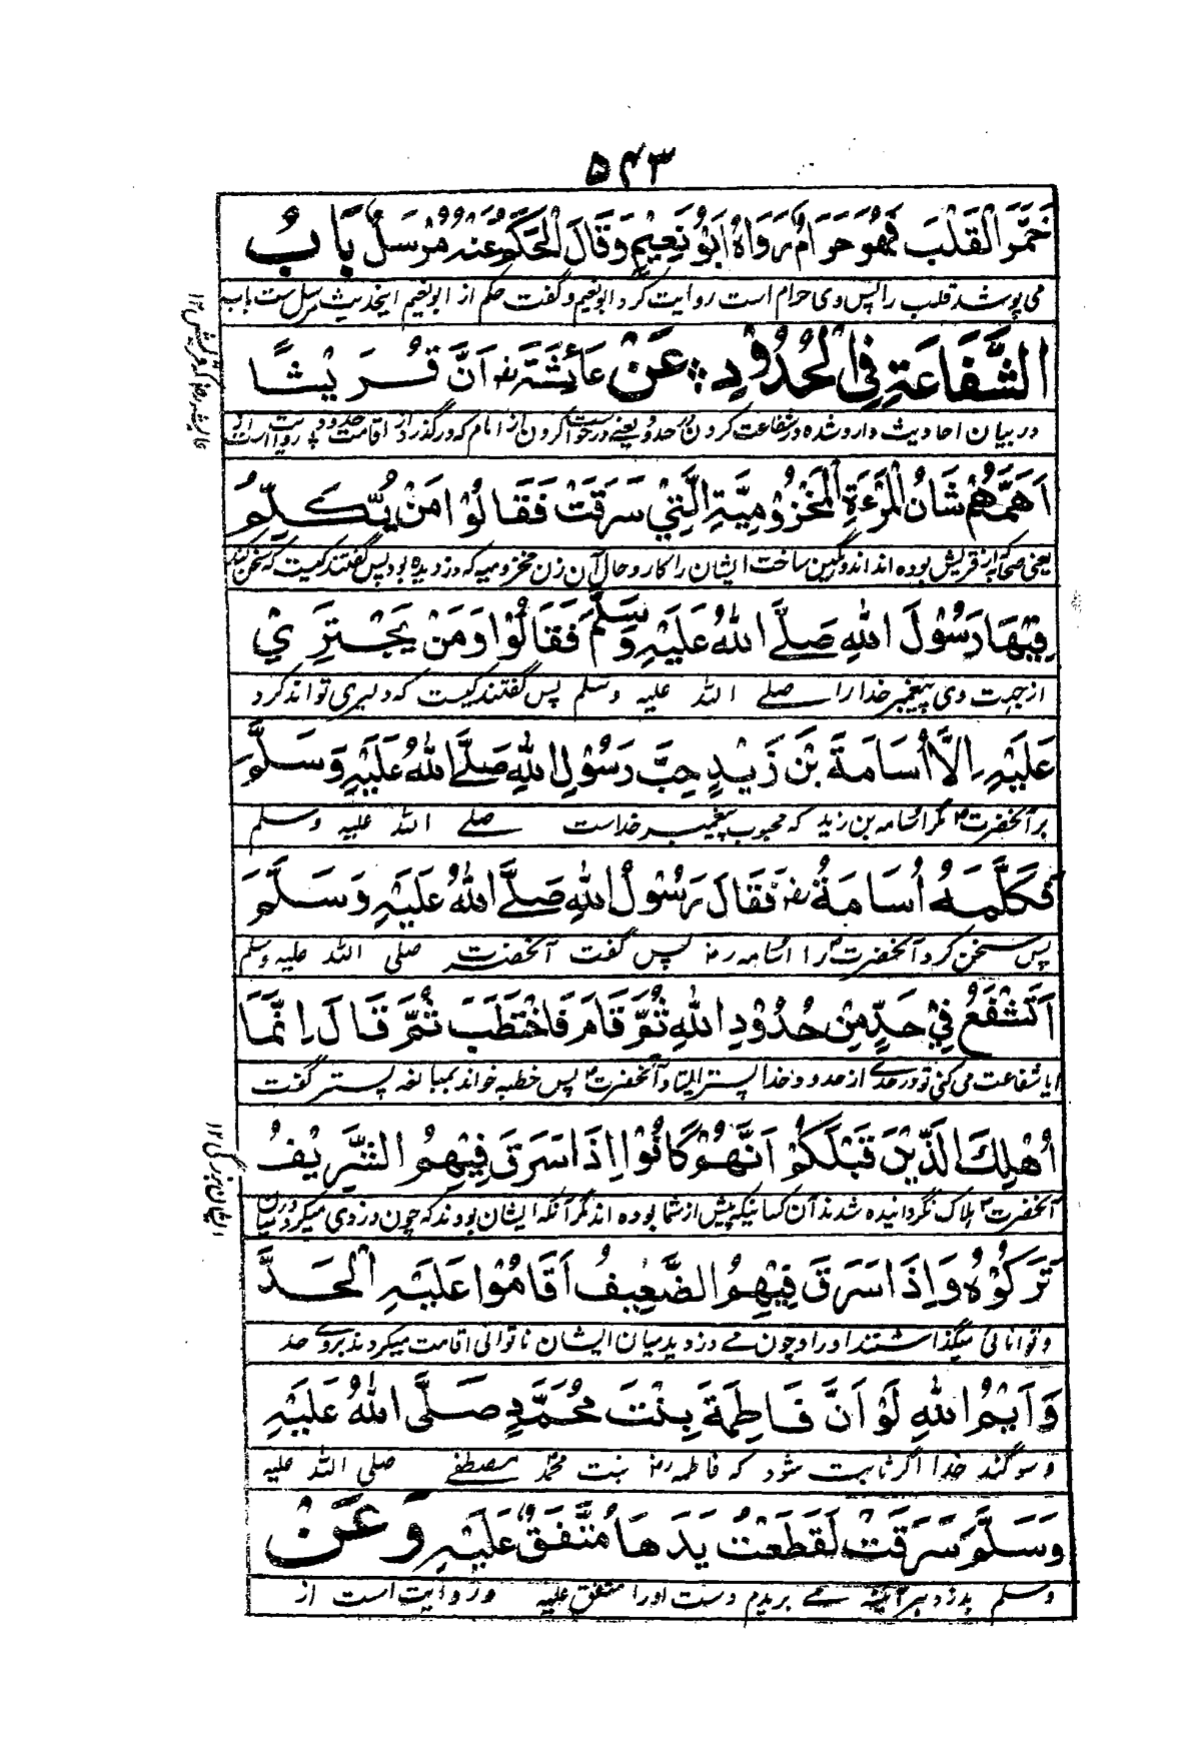 ۵۴۳
خَمَّرَ الْقَلْبَ فَهُوَ حَرَامٌ رَوَاهُ اَبُوْ نُعَيْمٍ وَقَالَ الْحَكَمُ عَنْهُ مُرْسَلٌ بَابُ
می پوشد قلب را پس وی حرام است روایت کرد ابو نعیم و گفت حکم از ابو نعیم اینحدیث مرسل ست باب
الشَّفَاعَةِ فِي الْحُدُوْدِ عَنْ عَائِشَةَ رض اَنَّ قُرَيْشًا
در بیان احادیث وارد شده در شفاعت کردن در حدود یعنی درخواست کردن از امام که درگذرد از اقامت حدود روایت است از
اَهَمَّهُمْ شَانُ الْمَرْءَةِ الْمَخْزُوْمِيَّةِ الَّتِيْ سَرَقَتْ فَقَالُوْا مَنْ يُّكَلِّمُ
یعنی صحابه از قریش بوده اند اندوهگین ساخت ایشان را کار و حال آن زن مخزومیه که دزدیده بود پس گفتند کیست که سخن کند
فِيْهَا رَسُوْلَ اللهِ صَلَّے اللهُ عَلَيْهِ وَسَلَّمَ فَقَالُوْا وَمَنْ يَجْتَرِيْ
از جهت وی پیغمبر خدا را صلے الله علیه وسلم پس گفتند کیست که دلیری تواند کرد
عَلَيْهِ اِلَّا اُسَامَةَ بْنَ زَيْدٍ حِبَّ رَسُوْلِ اللهِ صَلَّے اللهُ عَلَيْهِ وَسَلَّمَ
بر آنحضرت ۴ مگر اسامه بن زید که محبوب پیغمبر خداست صلے الله علیه وسلم
فَكَلَّمَهُ اُسَامَةُ رض فَقَالَ رَسُوْلُ اللهِ صَلَّے اللهُ عَلَيْهِ وَسَلَّمَ
پس سخن کرد آنحضرت ۴ را اسامه رض پس گفت آنحضرت صلی الله علیه وسلم
اَتَشْفَعُ فِيْ حَدٍّ مِنْ حُدُوْدِ اللهِ ثُمَّ قَامَ فَاخْتَطَبَ ثُمَّ قَالَ اِنَّمَا
ایا شفاعت می کنی تو در حدے از حدود خدا پستر ایستاد آنحضرت ۴ پس خطبه خواند بمبالغه پستر گفت
اُهْلِكَ الَّذِيْنَ قَبْلَكُمْ اَنَّهُمْ كَانُوْا اِذَا سَرَقَ فِيْهِمُ الشَّرِيْفُ
آنحضرت ۴ هلاک نگردانیده شدند آن کسانیکه پیش از شما بوده اند مگر آنکه ایشان بودند که چون دزدی میکرد درمیان
ایشان بزرگی ۱۲
تَرَكُوْهُ وَاِذَا سَرَقَ فِيْهِمُ الضَّعِيفُ اَقَامُوْا عَلَيْهِ الْحَدَّ
و توانائی میگذاشتند او را و چون مے دزدید میان ایشان ناتوانی اقامت میکردند بروے حد
وَاَيْمُ اللهِ لَوْ اَنَّ فَاطِمَةَ بِنْتَ مُحَمَّدٍ صَلَّى اللهُ عَلَيْهِ
و سوگند خدا اگر ثابت شود که فاطمه رض بنت محمد مصطفے صلی الله علیه
وَسَلَّمَ سَرَقَتْ لَقَطَعْتُ يَدَهَا مُتَّفَقٌ عَلَيْهِ وَعَنْ
وسلم بدزدد هر آئینه مے بریدم دست او را متفق علیه و روایت است از